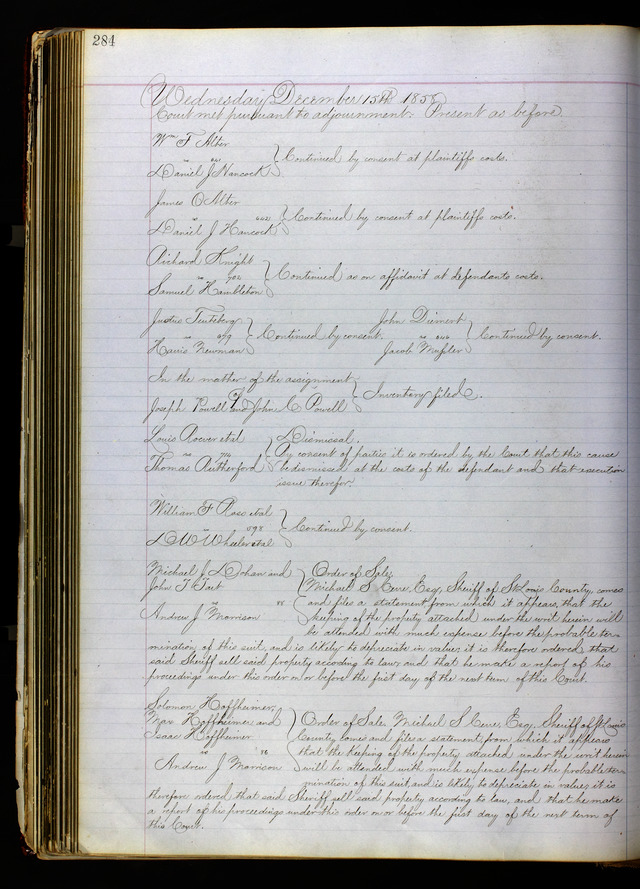 284
Wednesday December 15th 1858
Court met pursuant to adjournment. Present as before.
Wm F Alter
vs 441 } Continued by consent at plaintiffs costs.
Daniel J Hancock
James O Alter
vs 442 } Continued by consent at plaintiffs costs.
Daniel J Hancock
Richard Knight
vs 702 } Continued as on affidavit at defendants costs.
Samuel Hambleton
Justus
vs 679 } Continued by consent.
Harris Newman
John Diemert
vs } Continued by consent.
Jacob
In the matter of the assignment
of } Inventory filed.
Joseph Powell and John C Powell
Louis et al } Dismissal.
vs 714 By consent of parties it is ordered by the Court that this cause
Thomas Rutherford be dismissed at the costs of the defendant and that execution
issue therefor.
William F Ross et al
vs 598 } Continued by consent.
D W Wheeler et al
Michael J Dohan and } Order of Sale.
John T Tait Michael S Cerre, Esq, Sheriff of St Louis County, comes
vs and files a statement from which it appears, that the
Andrew J Morrison keeping of the property attached under the writ herein will
be attended with much expense before the probable ter-
mination of this suit, and is likely to depreciate in value, it is therefore ordered, that
said Sheriff sell said property according to law, and that he make a report of his
proceedings under this order on or before the first day of the next term of this Court.
Solomon Hoffheimer,
Max Hoffheimer and } Order of Sale. Michael S Cerre, Esq, Sheriff of St Louis
Isaac Hoffheimer County, comes and files a statement, from which it appears
vs that the keeping of the property attached under the writ herein
Andrew J Morrison will be attended with much expense before the probable ter-
mination of this suit, and is likely to depreciate in value, it is
therefore ordered, that said Sheriff sell said property according to law, and that he make
a report of his proceedings under this order on or before the first day of the next term of
this Court.